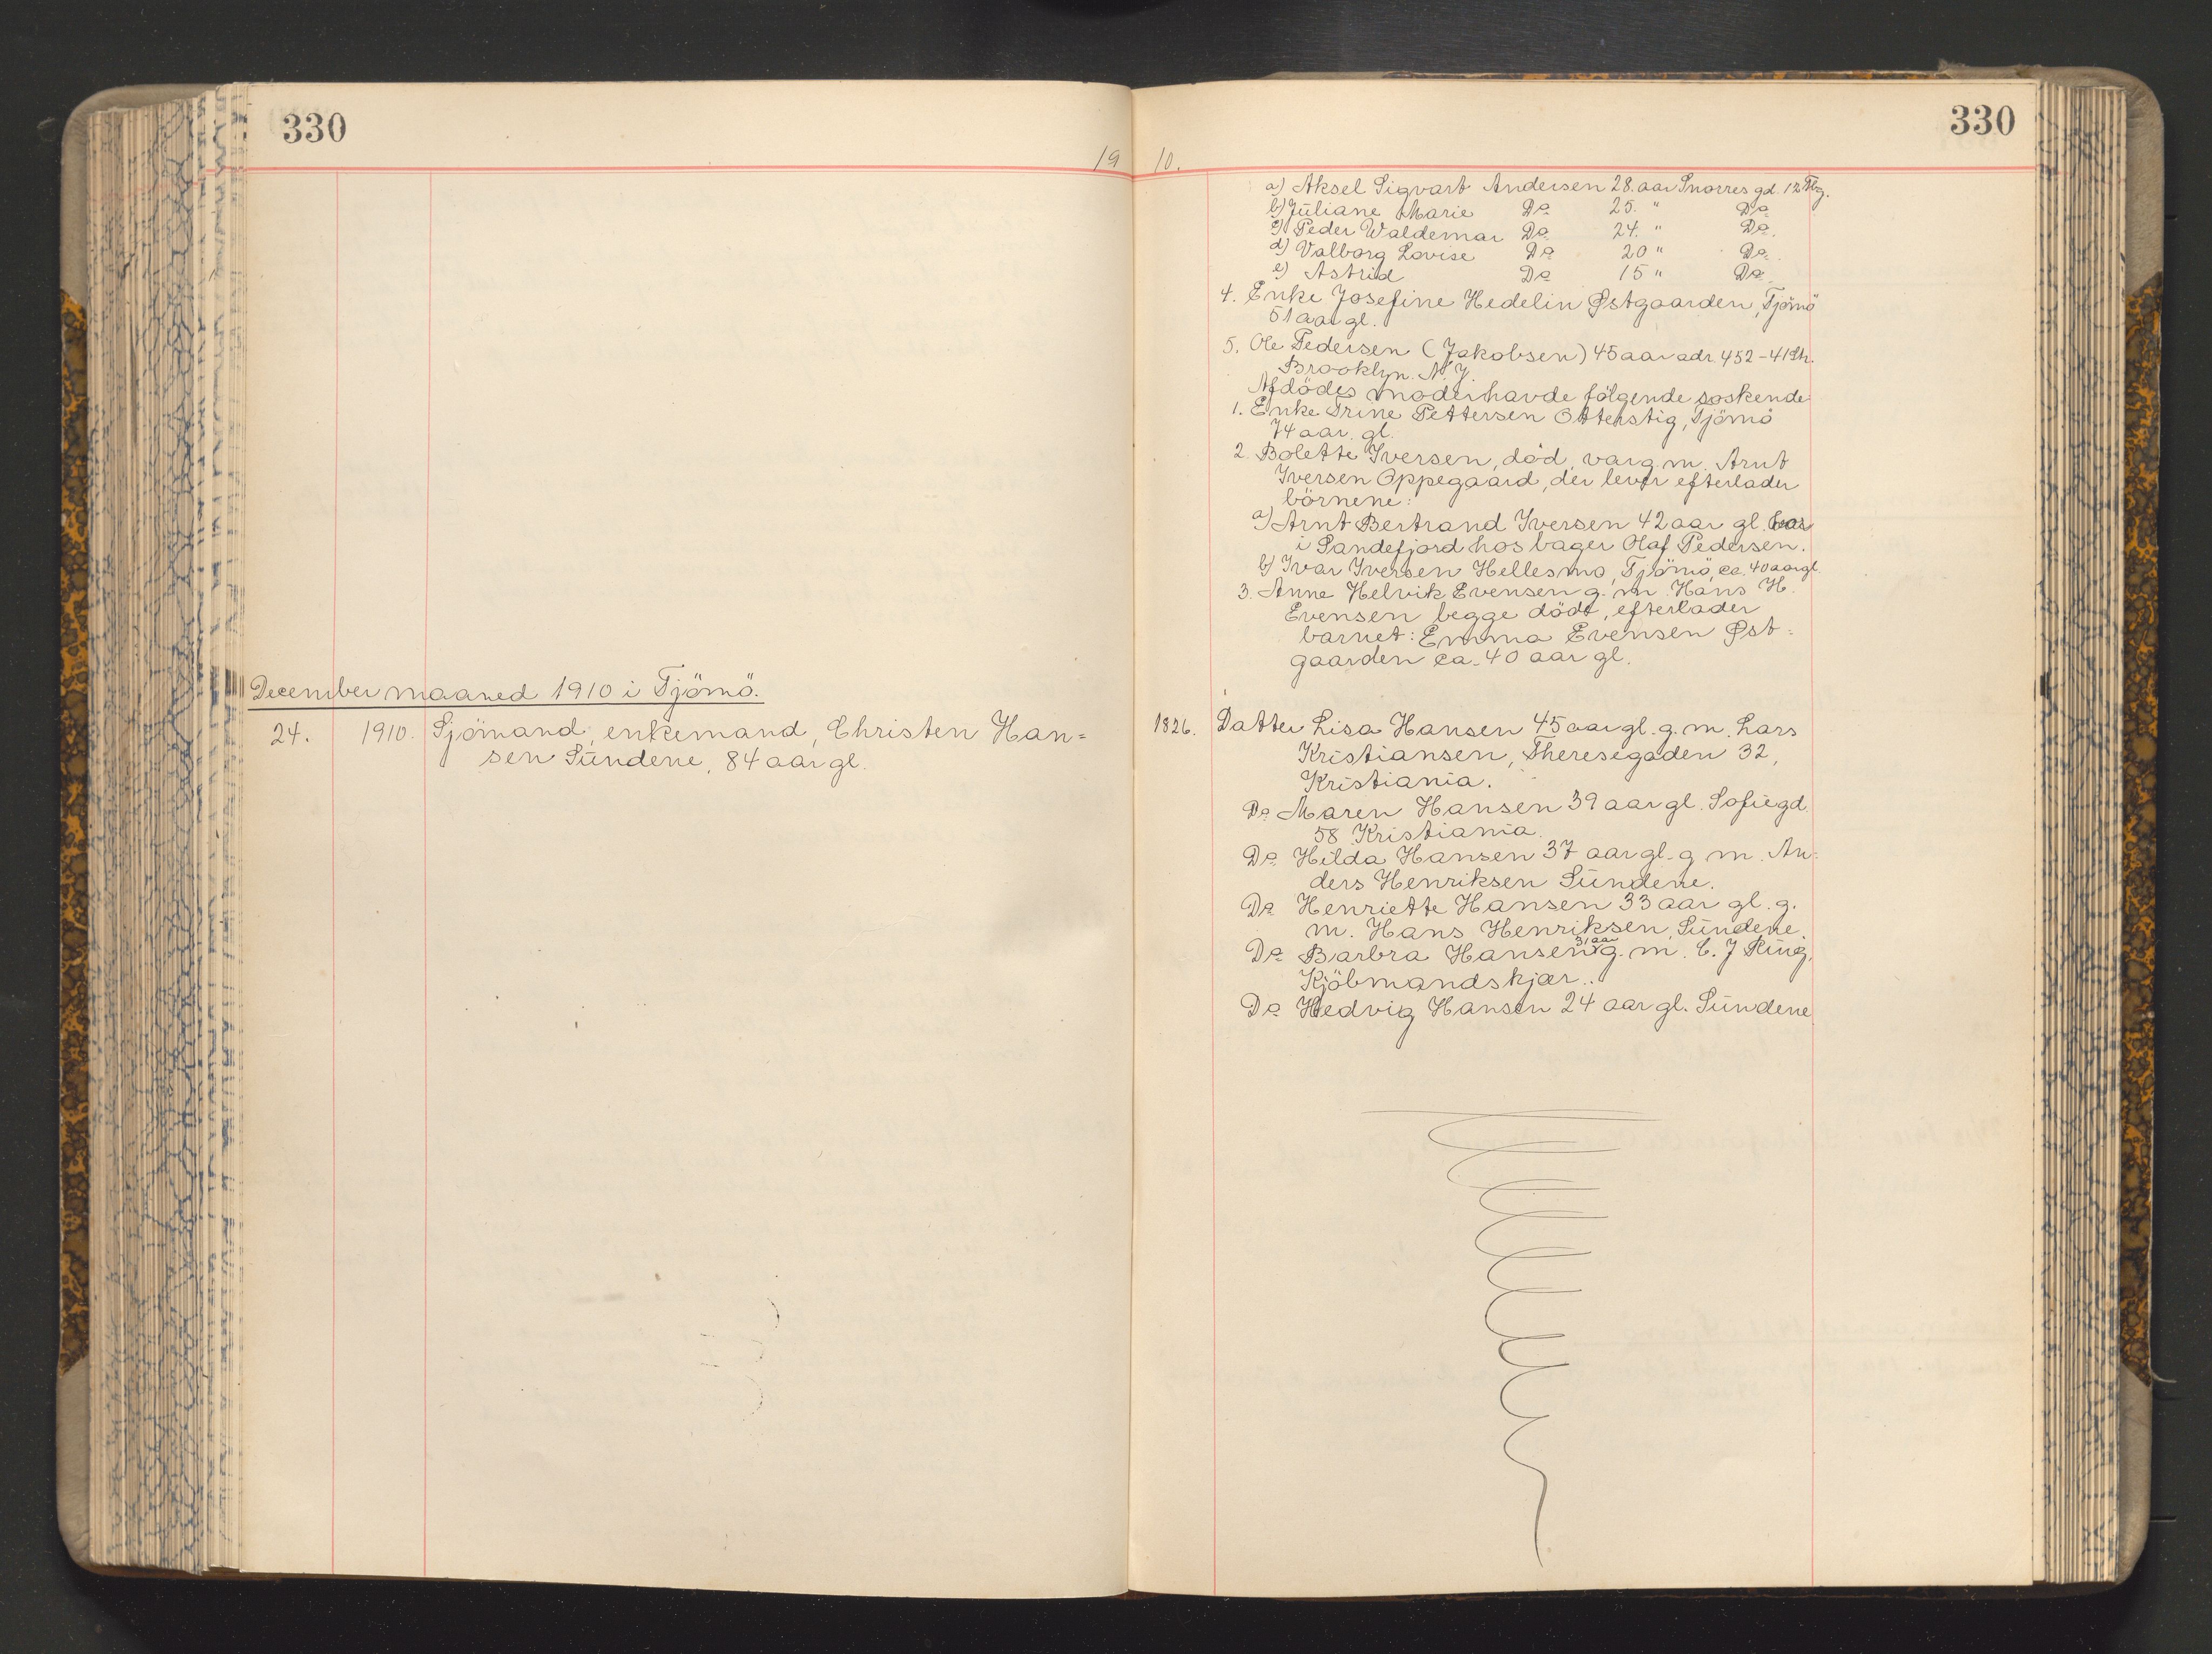 330
19
December maaned 1910 i Tjömö.
24. 1910. Sjömand, enkemand, Christen Han=
sen Sundene, 84 aar gl.
330
10.
a) Aksel Sigvart Andersen 28. aar Snorres gd. 12 Tbg.
b) Juliane Marie Do 25. " Do
c) Peder Waldemar Do 24. " Do.
d) Valborg Lovise Do 20 " Do.
e) Astrid Do 15 " Do.
4. Enke Josefine Hedelin Østgaarden, Tjömö
51 aar gl.
5. Ole Pedersen (Jakobsen) 45 aar adr. 452-41 Str.
Brooklyn. N.Y.
Afdödes moder havde fölgende soskende
1. Enke Trine Pettersen Otterstig, Tjömö
74 aar. gl.
2. Bolette Iversen, död, var g. m. Arnt
Iversen Oppegaard, der lever efterlader
börnene:
a) Arnt Bertrand Iversen 42 aar gl.
i Sandefjord hos bager Olaf Pedersen.
b) Ivar Iversen Hellesmo, Tjömö, ca. 40 aar gl
3. Anne Helvik Evensen g. m. Hans H.
Evensen begge döde, efterlader
barnet: Emma Evensen Øst=
gaarden ca. 40 aar gl.
1826. Datter Lisa Hansen 45 aar gl. g. m. Lars
Kristiansen, Theresegaden 32,
Kristiania.
Do Maren Hansen 39 aar gl. Sofiegd.
58 Kristiania.
Do Hilda Hansen 37 aar gl. g m. An=
ders Henriksen Sundene.
Do Henriette Hansen 33 aar gl. g.
m. Hans Henriksen, Sundene.
Do Barbra Hansen 31 aar g. m. C. J Kruge,
Kjöbmandskjær..
Do Hedvig Hansen 24 aar gl. Sundene.